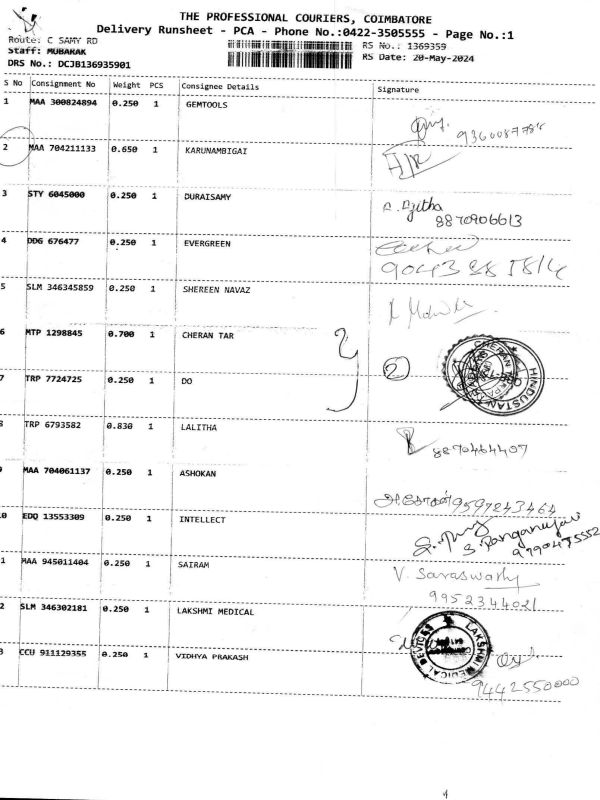 THE PROFESSIONAL COURIERS, COIMBATORE
Delivery Runsheet - PCA - Phone No.:0422-3505555 - Page No.:1
Route: C SAMY RD
RS No.: 1369359
Staff: MUBARAK
RS Date: 20-May-2024
DRS No.: DCJB136935901
S No Consignment No Weight PCS Consignee Details Signature
1 MAA 300824894 0.250 1 GEMTOOLS
2 MAA 704211133 0.650 1 KARUNAMBIGAI
3 STY 6045000 0.250 1 DURAISAMY
8870906613
4 DDG 676477 0.250 1 EVERGREEN
5 SLM 346345859 0.250 1 SHEREEN NAVAZ
6 MTP 1298845 0.700 1 CHERAN TAR
2
7 TRP 7724725 0.250 1 DO
8 TRP 6793582 0.830 1 LALITHA
8870464407
9 MAA 704061137 0.250 1 ASHOKAN
அசோகன் 9597243464
0 EDQ 13553309 0.250 1 INTELLECT
S. Ranganayaki
1 MAA 945011404 0.250 1 SAIRAM
V. Saraswathy
9952344021
2 SLM 346302181 0.250 1 LAKSHMI MEDICAL
LAKSHMI MEDICAL DEVICES
3 CCU 911129355 0.250 1 VIDHYA PRAKASH
9442550000